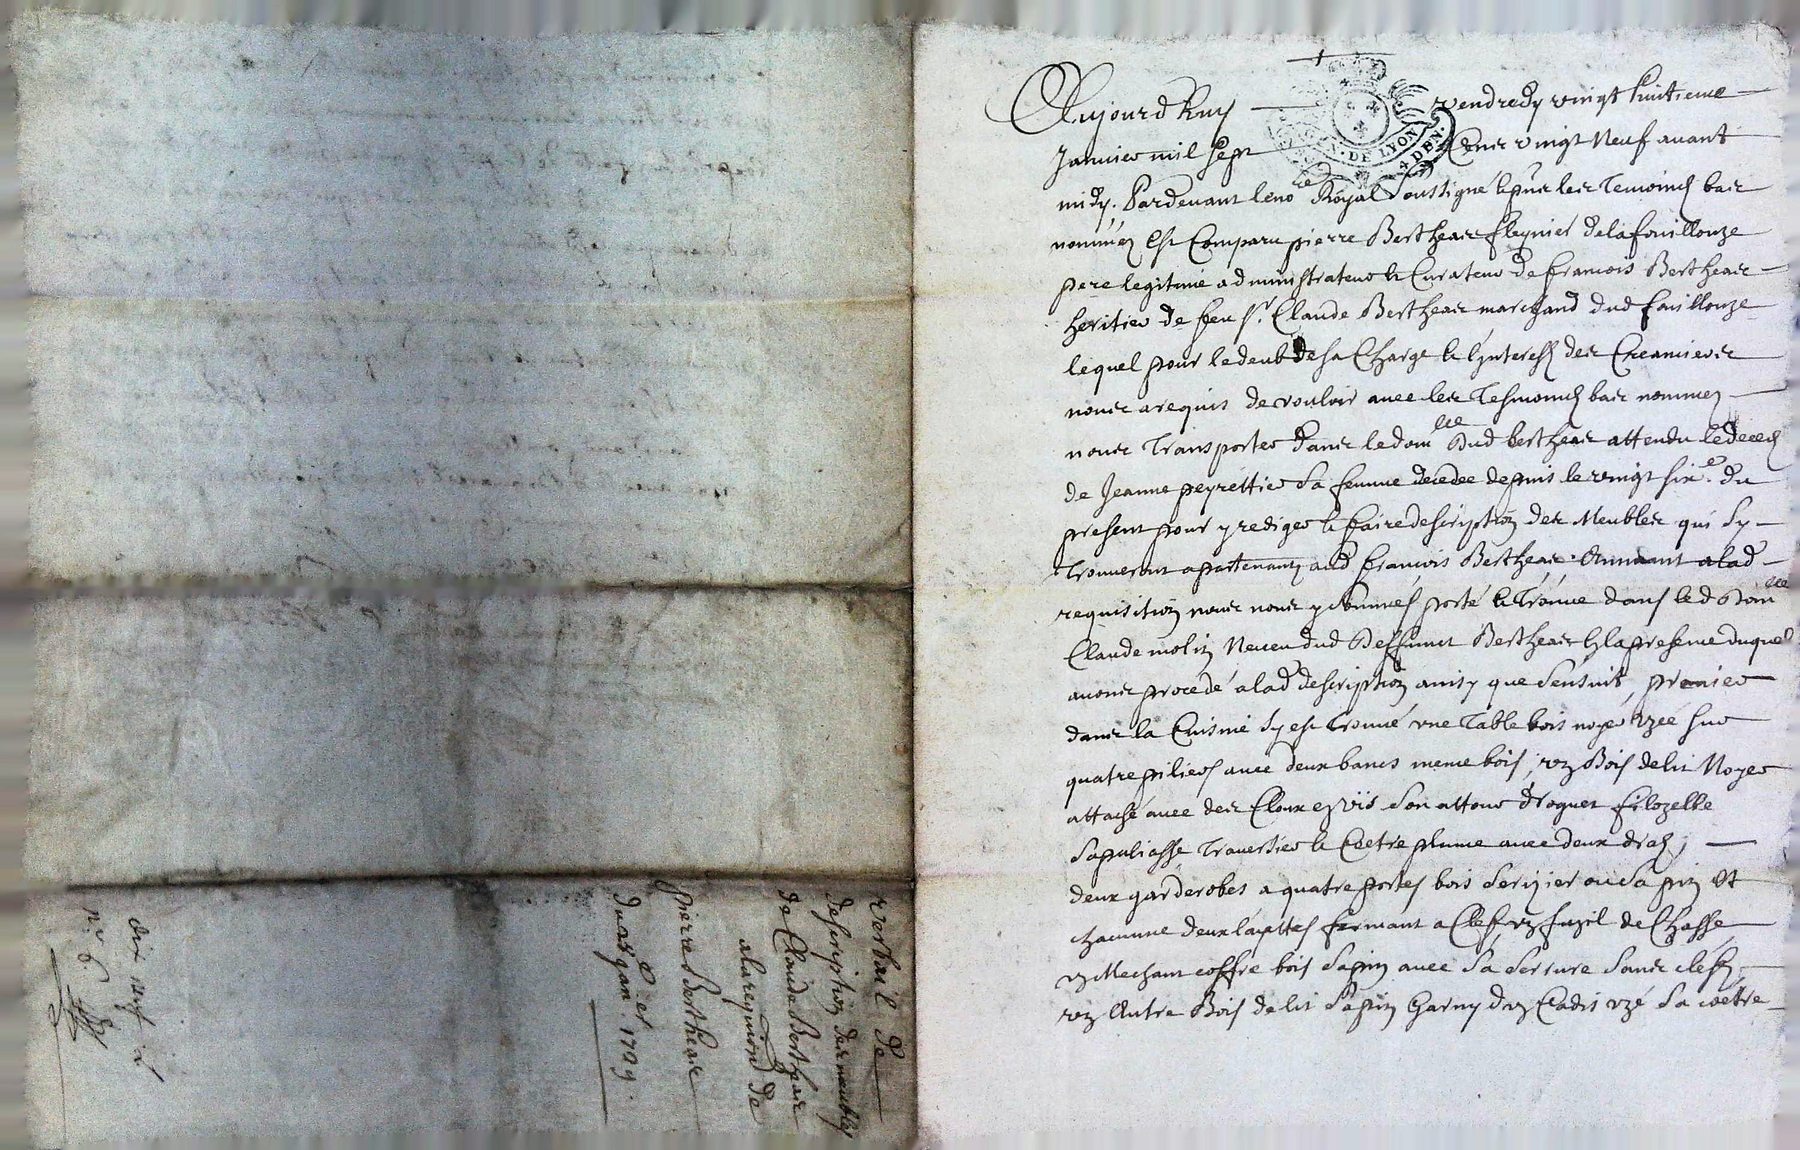 Aujourd'huy vendredy vingt huitieme
Janvier mil sept cens vingt neuf avant
midy. Pardevant le no.re Royal soussigné & pnt les temoins bas
nommez est comparu pierre Bertheas fleynier de la fouillouze
pere legitime administrateur & curateur de francois Bertheas
heritier de feu Sr. Claude Bertheas marchand dud fouillouze
lequel pour le deub de sa charge & l'jnterest des creanciers
nous a requis de vouloir avec les tesmoins bas nommez
nous transporter dans le domlle dud bertheas attendu le deceds
de Jeanne peyrettier sa femme decedee depuis le vingt six.e du
present pour y rediger & faire description des Meubles qui sy
trouveront apartenantz aud francois Bertheas. Annuant a lad
requisition nous nous y sommes porté & trouvé dans led domlle
Claude molin Neveu dud deffunct Bertheas En la presence duquel
avons procedé a lad description ainsy que sensuit, premier
dans la Cuisine sy est trouvé une table bois noyer uzée sur
quatre piliers avec deux bancs meme bois, un Bois de lit Noyer
attaché avec des cloux et vis son attour droguet filozelle
sa paliasse traversier & coetre plume avec deux draps;
deux garderobes a quatre portes bois serizier ou sapin et
chacune deux layettes fermant a clef, un fuzil de chasse,
un Mechant coffre bois sapin avec sa serrure sans clefs,
un Autre Bois de lit sapin Garny dun Cadis uzé sa coetre
verbail de
description des meubles
de Claude Bertheas
a la requion de
pierre Bertheas
du 28e janr. 1729.
dix neuf
n.o 6.
GEN. DE LYON
4 DEN.